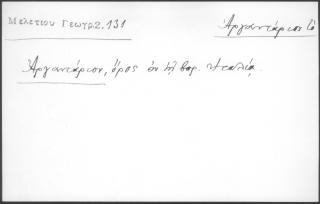 Μελετιου Γεωγρ2.131
Ἀργαντάριον τό
Ἀργαντάριον, ὄρος ἐν τῇ βορ. Ἰταλίᾳ.